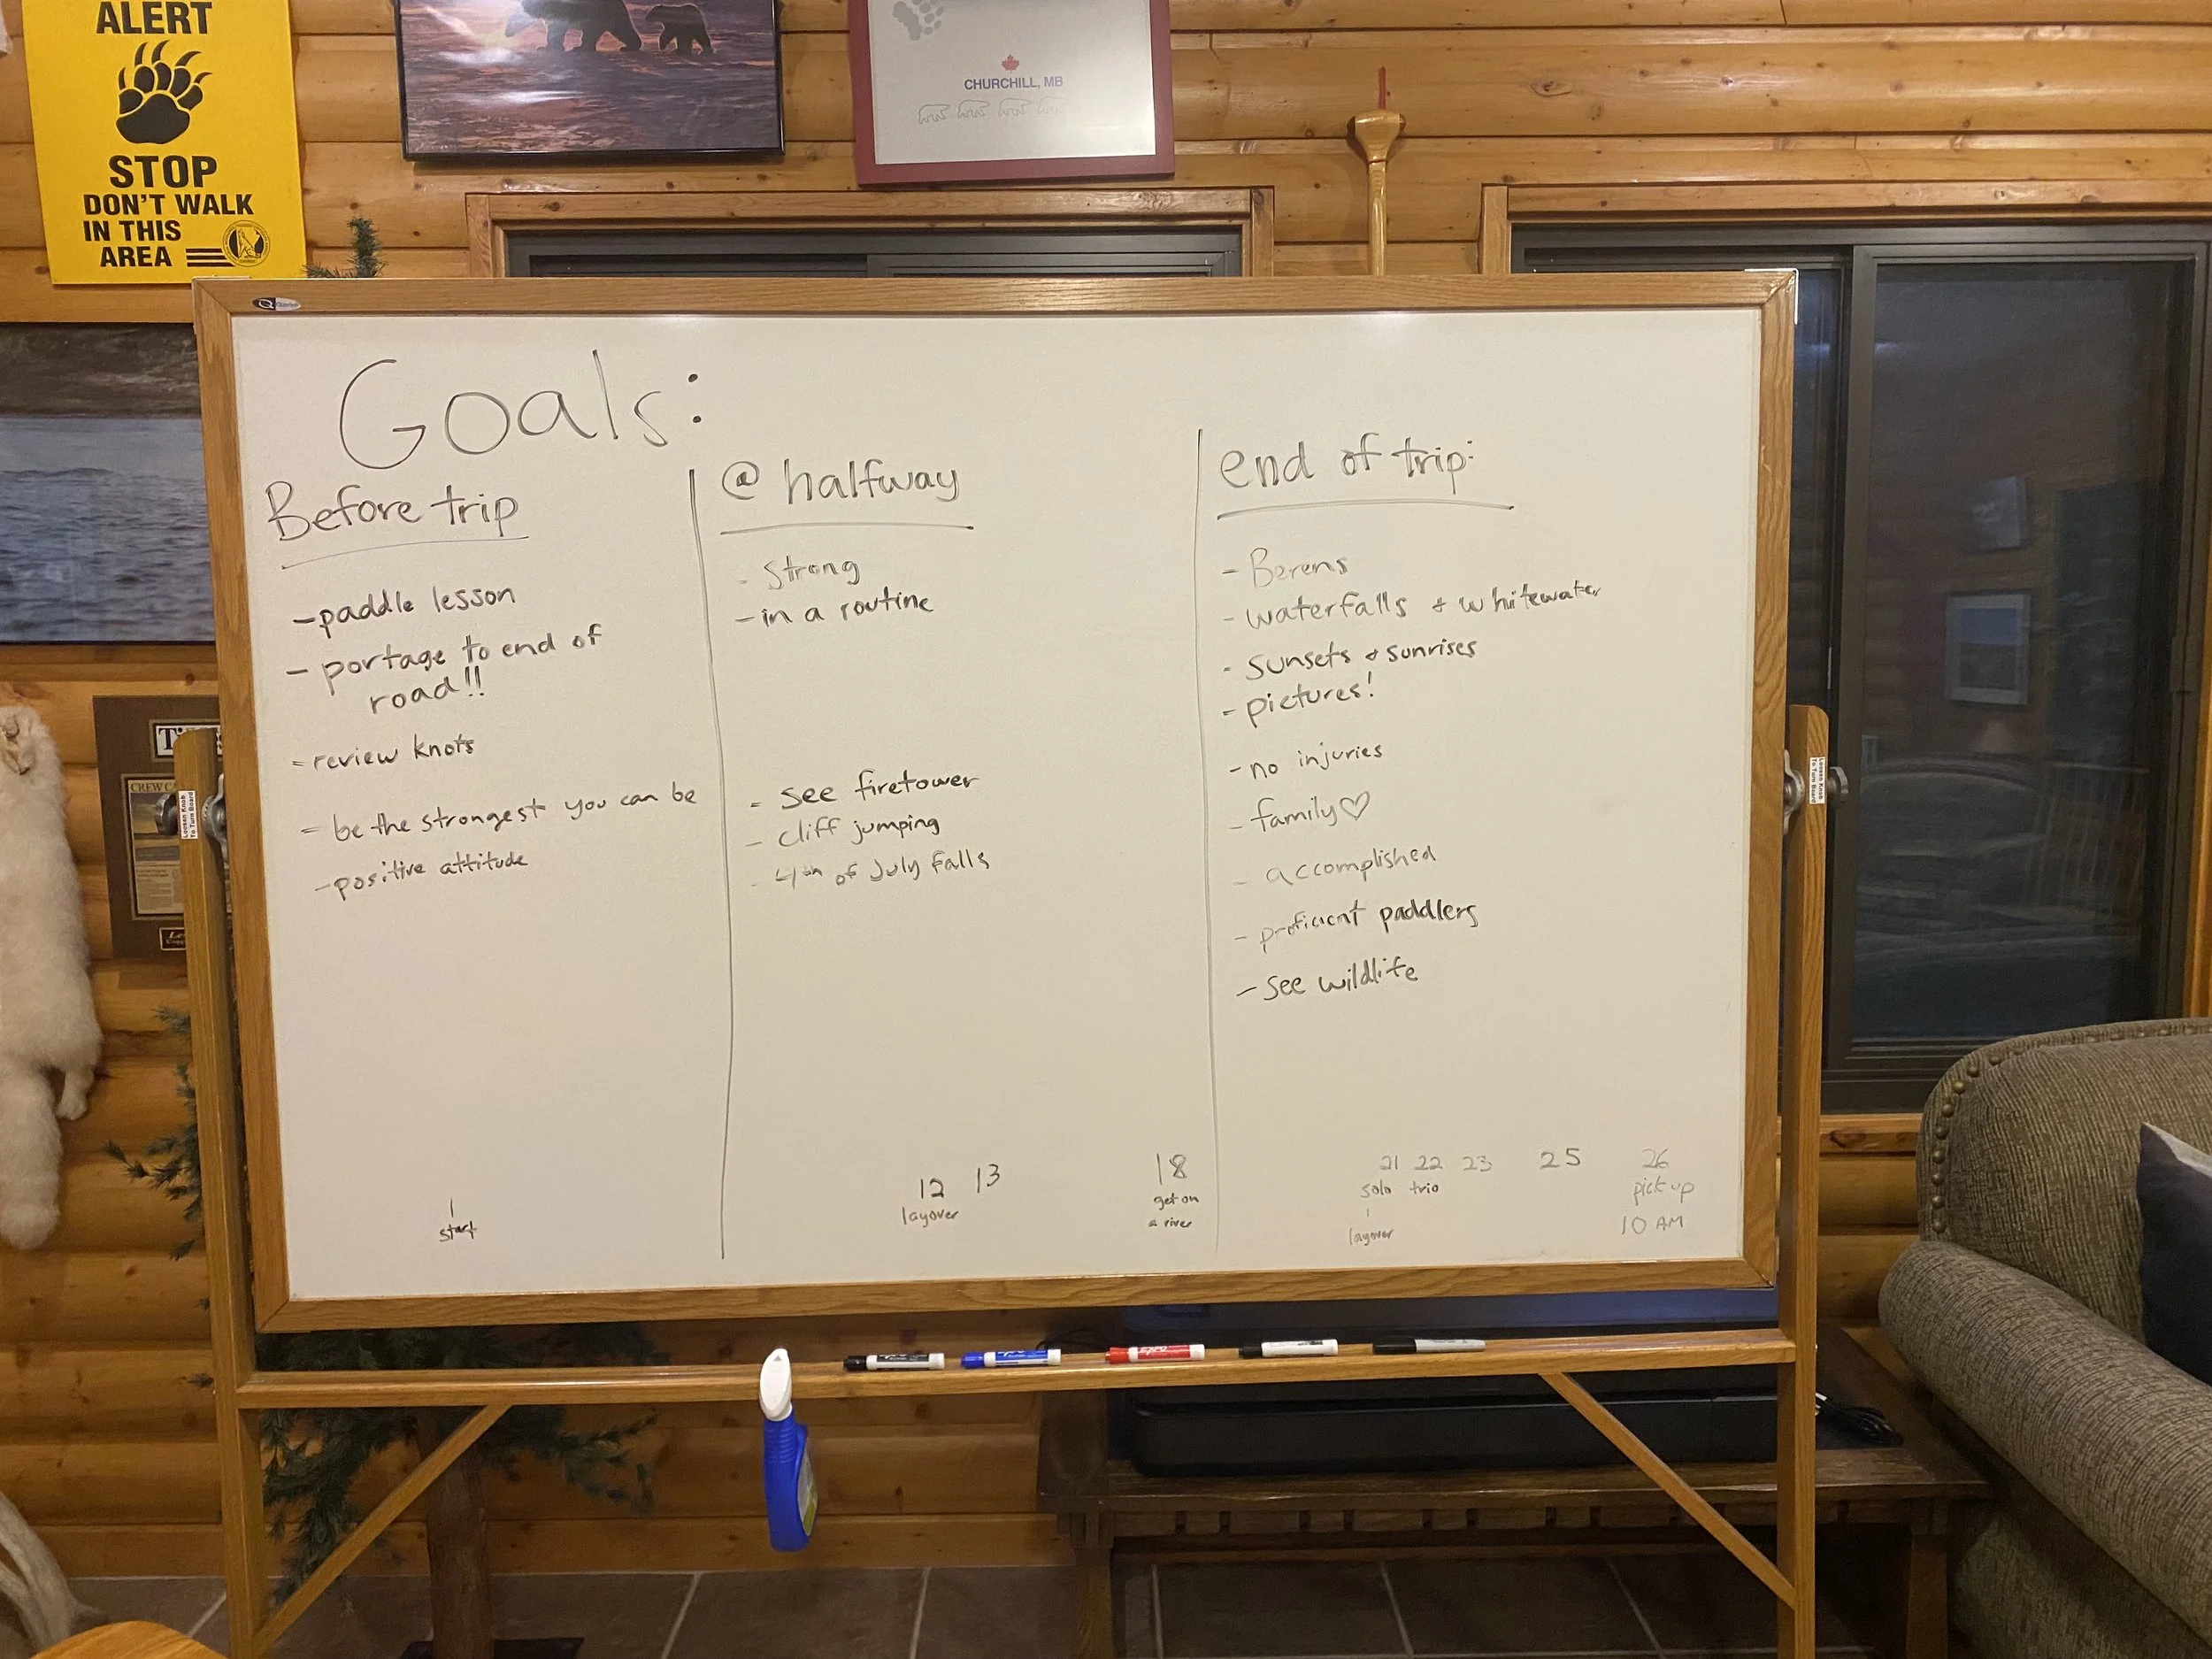 ALERT
STOP
DON'T WALK
IN THIS
AREA
CHURCHILL, MB
Goals:
Before trip
- paddle lesson
- portage to end of
road!!
- review knots
- be the strongest you can be
- positive attitude
@ halfway
- Strong
- in a routine
- see firetower
- cliff jumping
- 4th of July Falls
end of trip:
- Berens
- waterfalls + whitewater
- sunsets + sunrises
- pictures!
- no injuries
- family♡
- accomplished
- proficient paddlers
- see wildlife
1
start
12 13
layover
18
get on
a river
21 22 23 25 26
solo trio pick up
layover 10 AM
Loosen Knob
To Turn Board
Loosen Knob
To Turn Board
EXPO